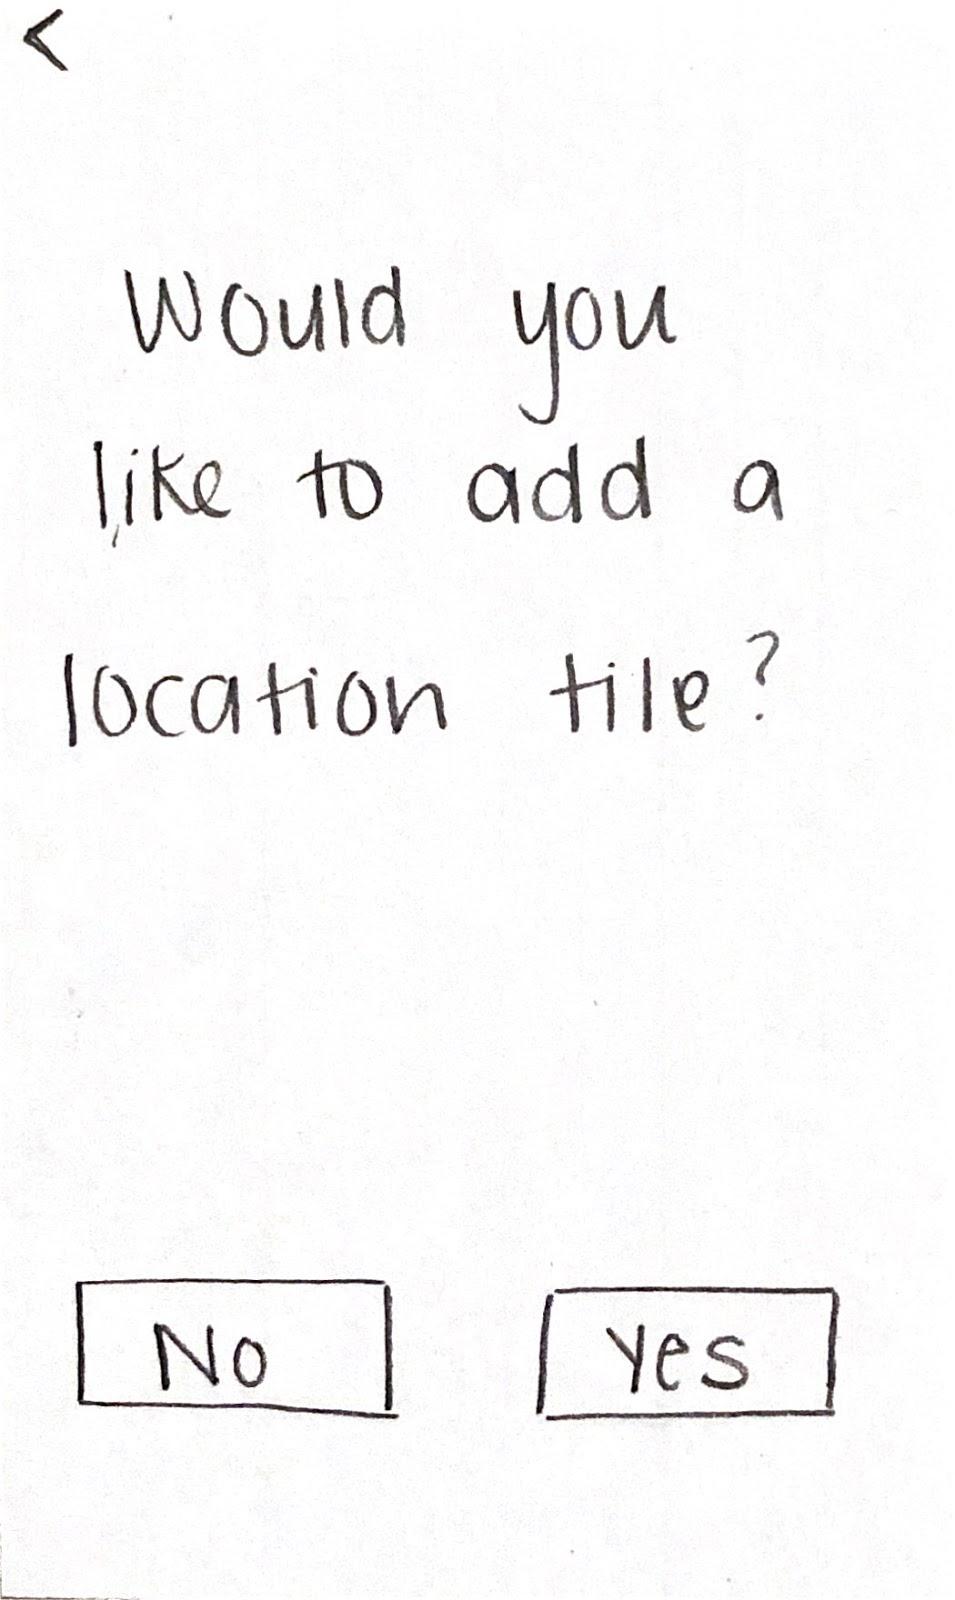 <
Would you
like to add a
location tile?
No
Yes